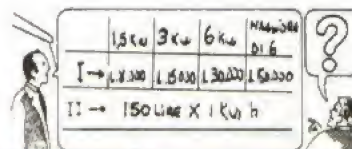 1,5 Kw 3 Kw 6 Kw MAGGIORE DI 6
I → L.8.000 L.15.000 L.30.000 L.50.000
II → 150 LIRE X 1 Kw h
?